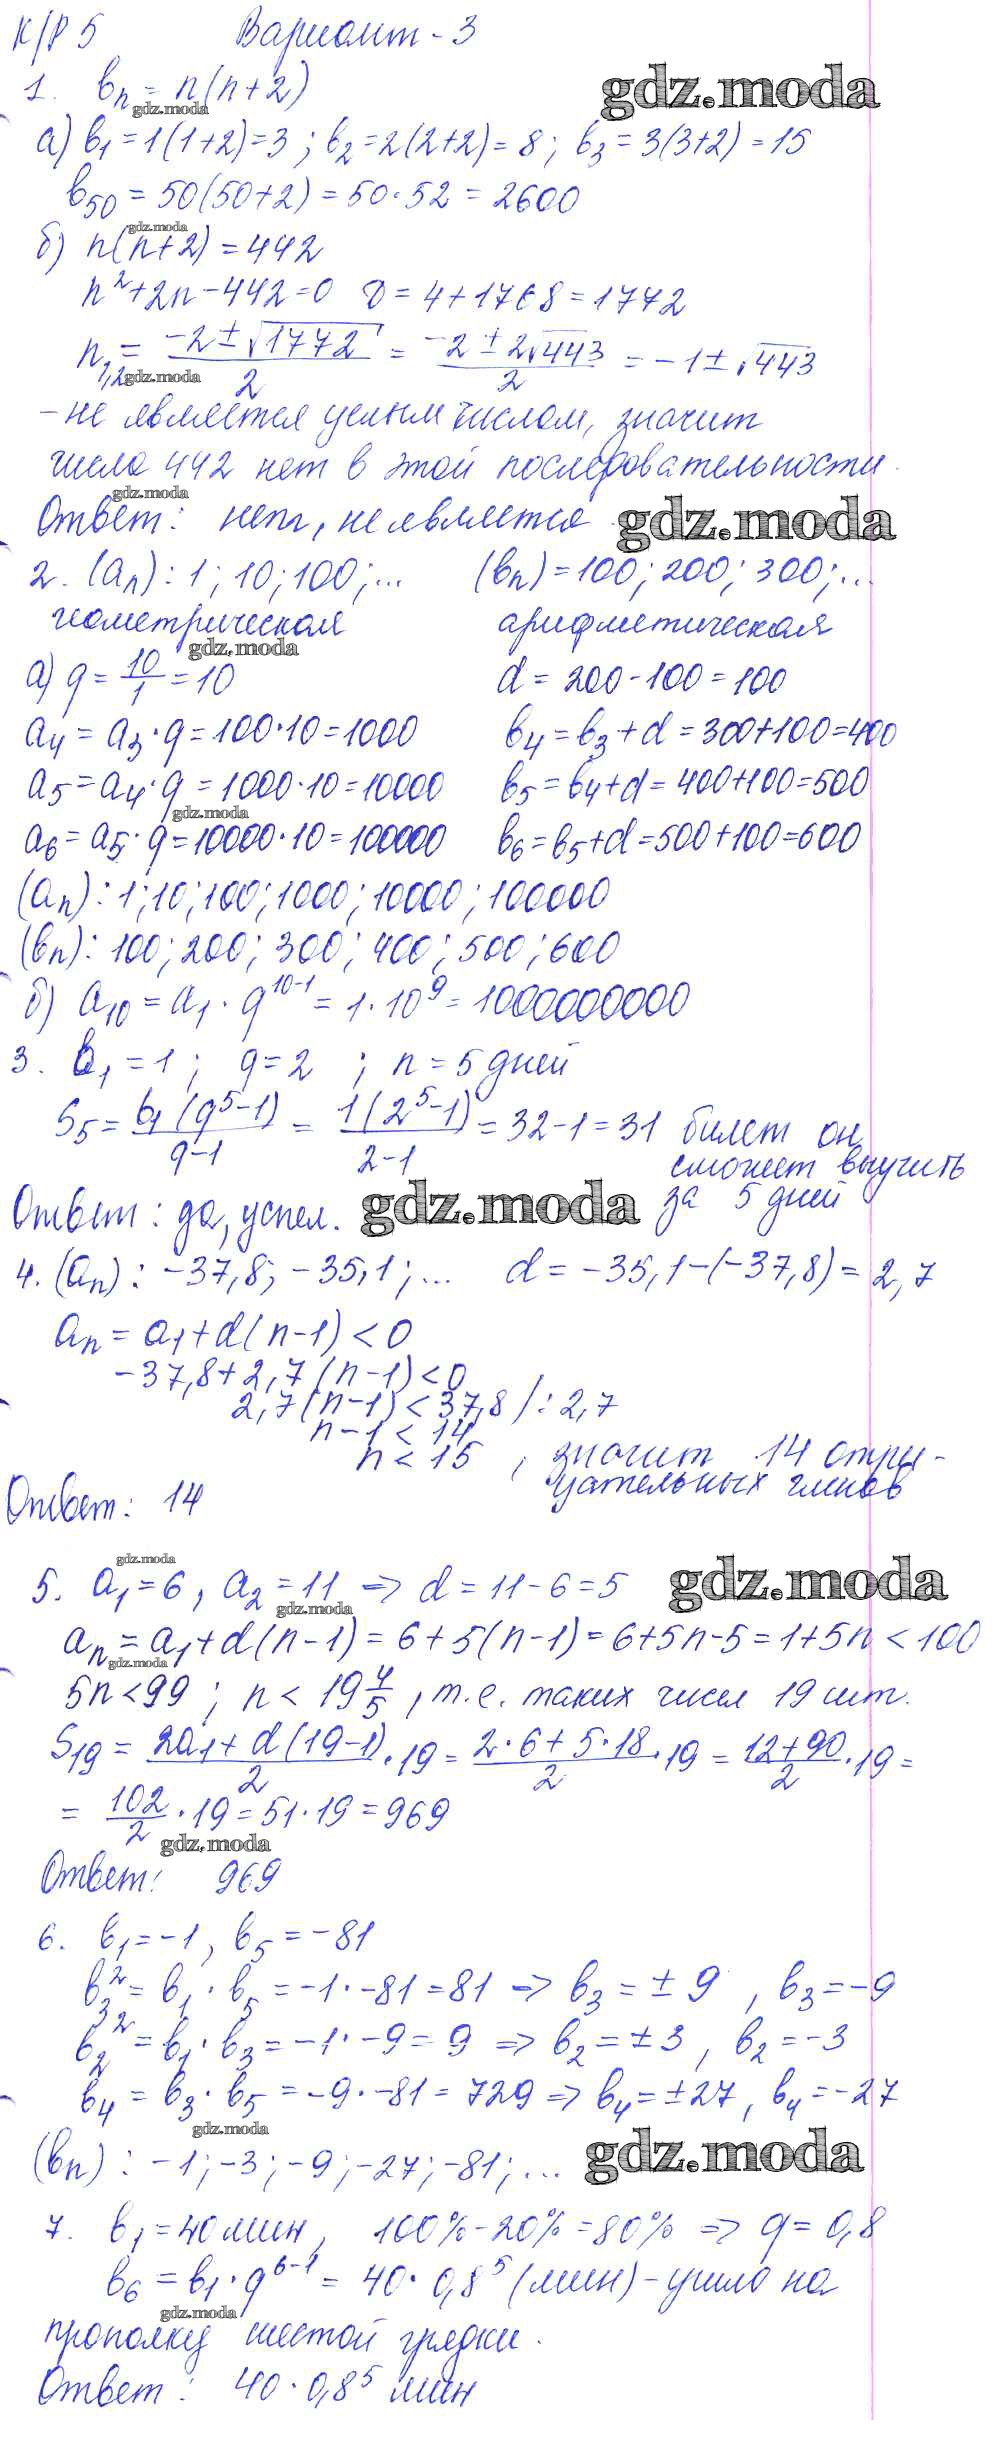 К/Р 5 Вариант - 3
1. bn = n(n+2)
gdz.moda
gdz.moda
а) b1 = 1(1+2) = 3 ; b2 = 2(2+2) = 8 ; b3 = 3(3+2) = 15
b50 = 50(50+2) = 50·52 = 2600
gdz.moda
б) n(n+2) = 442
n²+2n-442=0 D = 4+1768 = 1772
n1,2 = (-2±√1772)/2 = (-2±2√443)/2 = -1±√443
gdz.moda
- не является целым числом, значит
число 442 нет в этой последовательности.
gdz.moda
Ответ: нет, не является.
gdz.moda
2. (an): 1; 10; 100; ... (bn) = 100; 200; 300; ...
геометрическая арифметическая
gdz.moda
а) q = 10/1 = 10 d = 200-100 = 100
a4 = a3·q = 100·10 = 1000 b4 = b3+d = 300+100 = 400
a5 = a4·q = 1000·10 = 10000 b5 = b4+d = 400+100 = 500
gdz.moda
a6 = a5·q = 10000·10 = 100000 b6 = b5+d = 500+100 = 600
(an): 1; 10; 100; 1000; 10000; 100000
(bn): 100; 200; 300; 400; 500; 600
б) a10 = a1·q^(10-1) = 1·10^9 = 1000000000
3. b1 = 1; q = 2 ; n = 5 дней
S5 = b1(q^5-1)/(q-1) = 1(2^5-1)/(2-1) = 32-1 = 31 билет он
сможет выучить
за 5 дней
Ответ: да, успел.
gdz.moda
4. (an): -37,8; -35,1; ... d = -35,1-(-37,8) = 2,7
an = a1+d(n-1) < 0
-37,8+2,7(n-1)<0
2,7(n-1) < 37,8 /: 2,7
n-1 < 14
n < 15 , значит 14 отри-
цательных членов
Ответ: 14
gdz.moda
5. a1 = 6, a2 = 11 => d = 11-6 = 5
gdz.moda
gdz.moda
an = a1+d(n-1) = 6+5(n-1) = 6+5n-5 = 1+5n < 100
gdz.moda
5n<99 ; n < 19 4/5 , т.е. таких чисел 19 шт.
S19 = (2a1+d(19-1))/2 ·19 = (2·6+5·18)/2 ·19 = (12+90)/2 ·19 =
= 102/2 ·19 = 51·19 = 969
gdz.moda
Ответ: 969
6. b1 = -1, b5 = -81
b3² = b1·b5 = -1·-81 = 81 => b3 = ±9 , b3 = -9
b2² = b1·b3 = -1·-9 = 9 => b2 = ±3 , b2 = -3
b4 = b3·b5 = -9·-81 = 729 => b4 = ±27, b4 = -27
gdz.moda
(bn): -1; -3; -9; -27; -81; ...
gdz.moda
7. b1 = 40 мин, 100%-20% = 80% => q = 0,8
b6 = b1·q^(6-1) = 40·0,8^5 (мин) - ушло на
gdz.moda
прополку шестой грядки.
Ответ: 40·0,8^5 мин